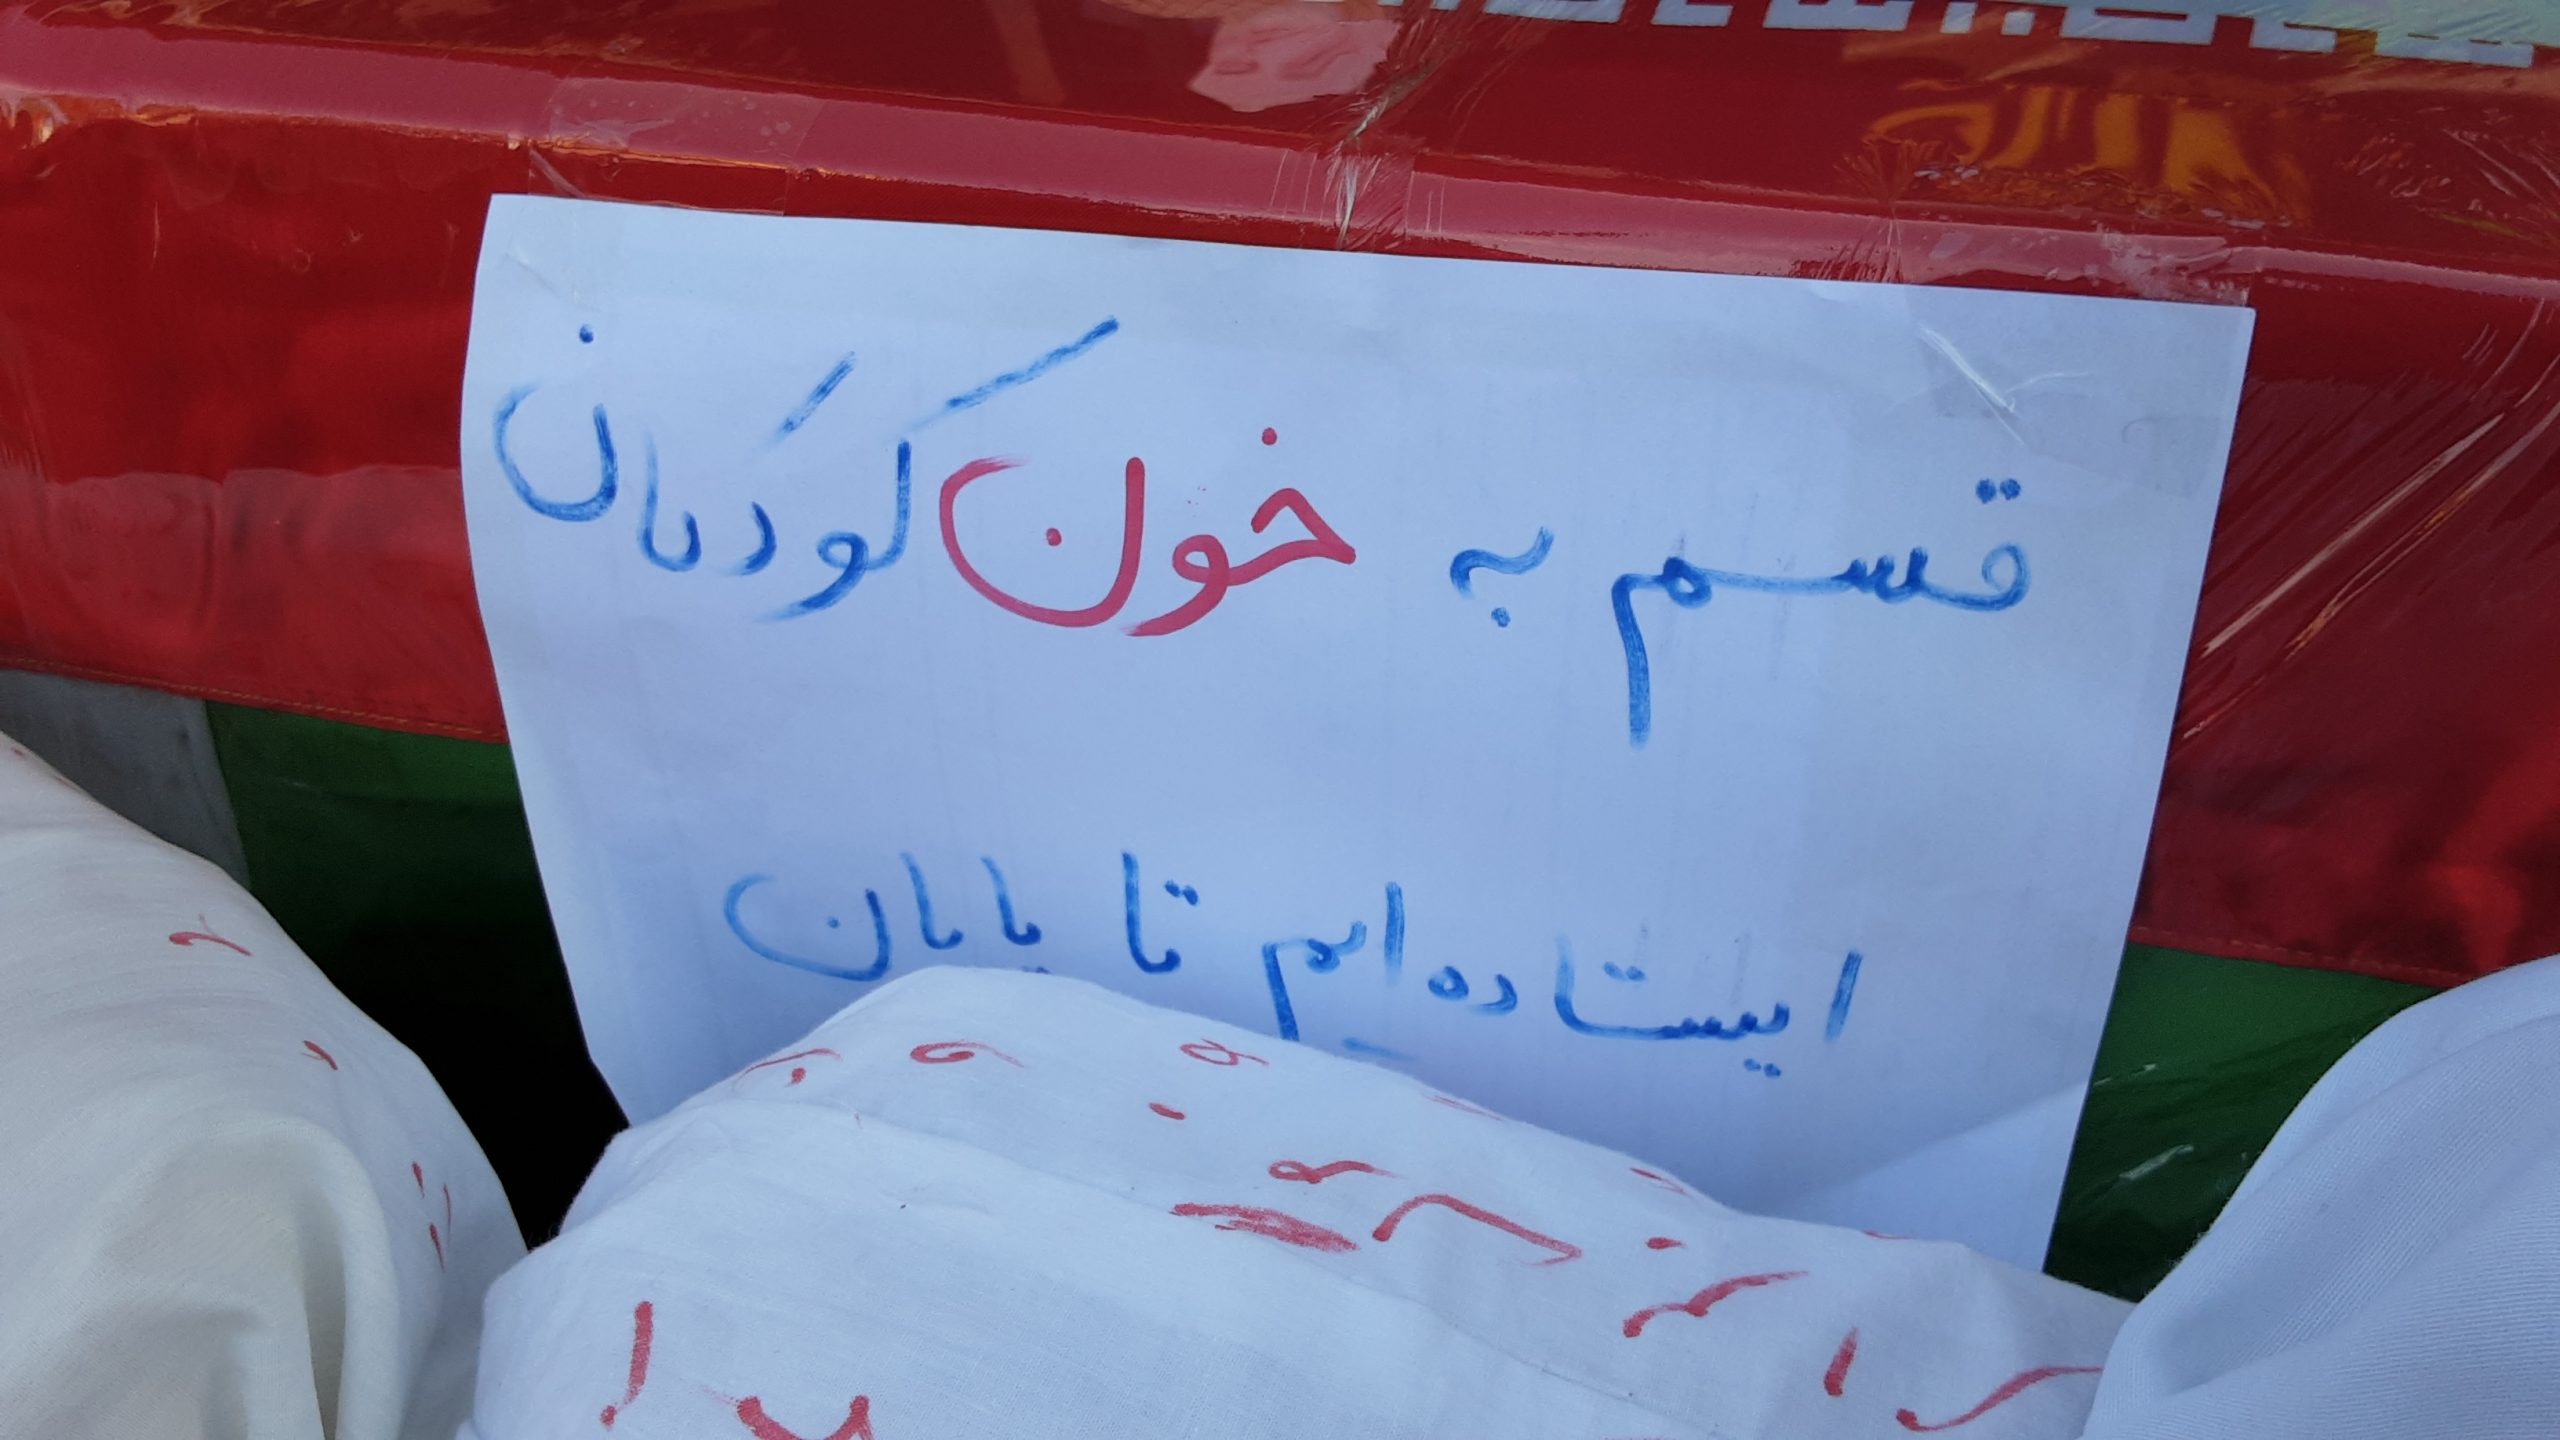 قسم به خون کودکان
ایستاده‌ایم تا پایان